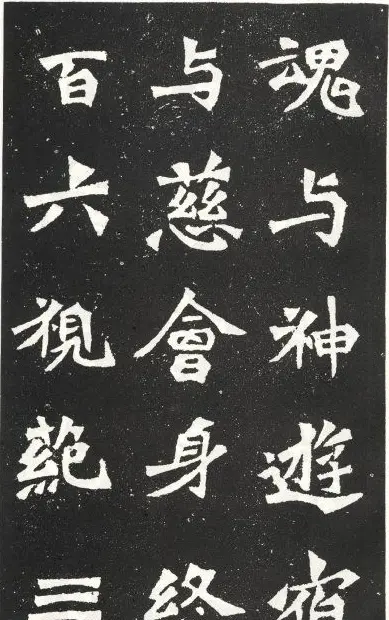 魂与神遊宿
与慈會身終
百六視三